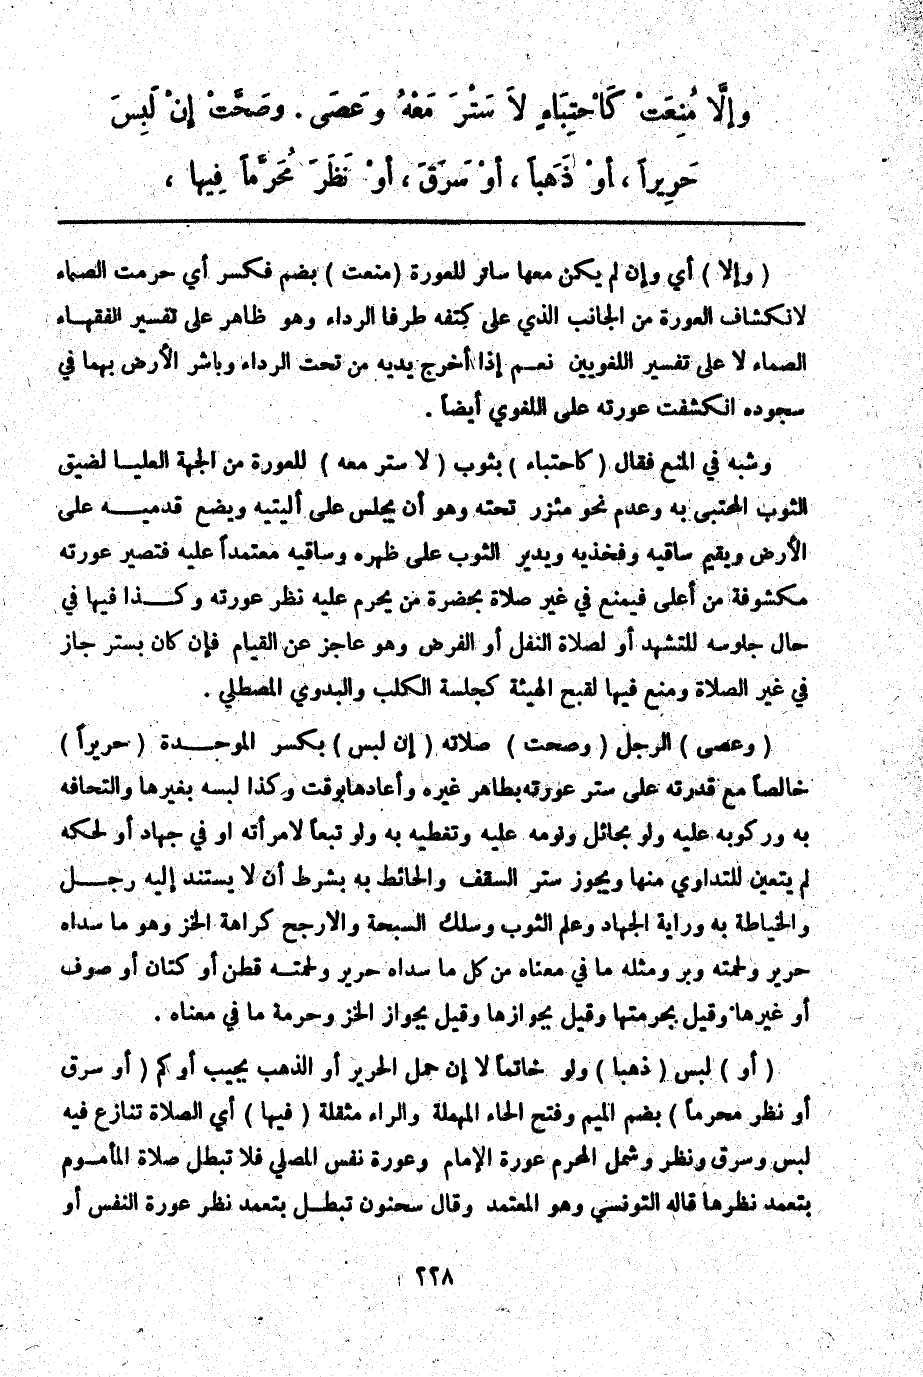 وإلَّا مُنِعَتْ كَاحْتِبَاءٍ لاَ سَتْرَ مَعْهُ وَعَصَى. وصَحَّتْ إنْ لَبِسَ
حَرِيراً، أوْ ذَهَباً، أوْ سَرَقَ، أوْ نَظَرَ مُحَرَّماً فِيها،
( وإلا ) أي وإن لم يكن معها ساتر للعورة (منعت ) بضم فكسر أي حرمت الصماء
لانكشاف العورة من الجانب الذي على كتفه طرفا الرداء وهو ظاهر على تفسير الفقهاء
الصماء لا على تفسير اللغويين نعم إذا أخرج يديه من تحت الرداء وباشر الأرض بهما في
سجوده انكشفت عورته على اللغوي أيضاً .
وشبه في المنع فقال ( كاحتباء ) بثوب ( لا ستر معه ) للعورة من الجهة العليا لضيق
الثوب المحتبى به وعدم نحو مئزر تحته وهو أن يجلس على أليتيه ويضع قدميه على
الأرض ويقيم ساقيه وفخذيه ويدير الثوب على ظهره وساقيه معتمداً عليه فتصير عورته
مكشوفة من أعلى فيمنع في غير صلاة بحضرة من يحرم عليه نظر عورته وكذا فيها في
حال جلوسه للتشهد أو لصلاة النفل أو الفرض وهو عاجز عن القيام فإن كان بستر جاز
في غير الصلاة ومنع فيها لقبح الهيئة كجلسة الكلب والبدوي المصطلي .
( وعصى ) الرجل ( وصحت ) صلاته ( إن لبس ) بكسر الموحدة ( حريراً )
خالصاً مع قدرته على ستر عورته بطاهر غيره وأعادها بوقت وكذا لبسه بغيرها والتحافه
به وركوبه عليه ولو بحائل ونومه عليه وتغطيه به ولو تبعاً لامرأته او في جهاد أو لحكه
لم يتعين للتداوي منها ويجوز ستر السقف والحائط به بشرط أن لا يستند إليه رجل
والخياطة به وراية الجهاد وعلم الثوب وسلك السبحة والارجح كراهة الخز وهو ما سداه
حرير ولحمته وبر ومثله ما في معناه من كل ما سداه حرير ولحمته قطن أو كتان أو صوف
أو غيرها وقيل بحرمتها وقيل بجوازها وقيل بجواز الخز وحرمة ما في معناه .
( أو ) لبس ( ذهبا ) ولو خاتماً لا إن حمل الحرير أو الذهب بجيب أو كم ( أو سرق
أو نظر محرماً ) بضم الميم وفتح الحاء المهملة والراء مثقلة ( فيها ) أي الصلاة تنازع فيه
لبس وسرق ونظر وشمل المحرم عورة الإمام وعورة نفس المصلي فلا تبطل صلاة المأموم
بتعمد نظرها قاله التونسي وهو المعتمد وقال سحنون تبطل بتعمد نظر عورة النفس أو
٢٢٨